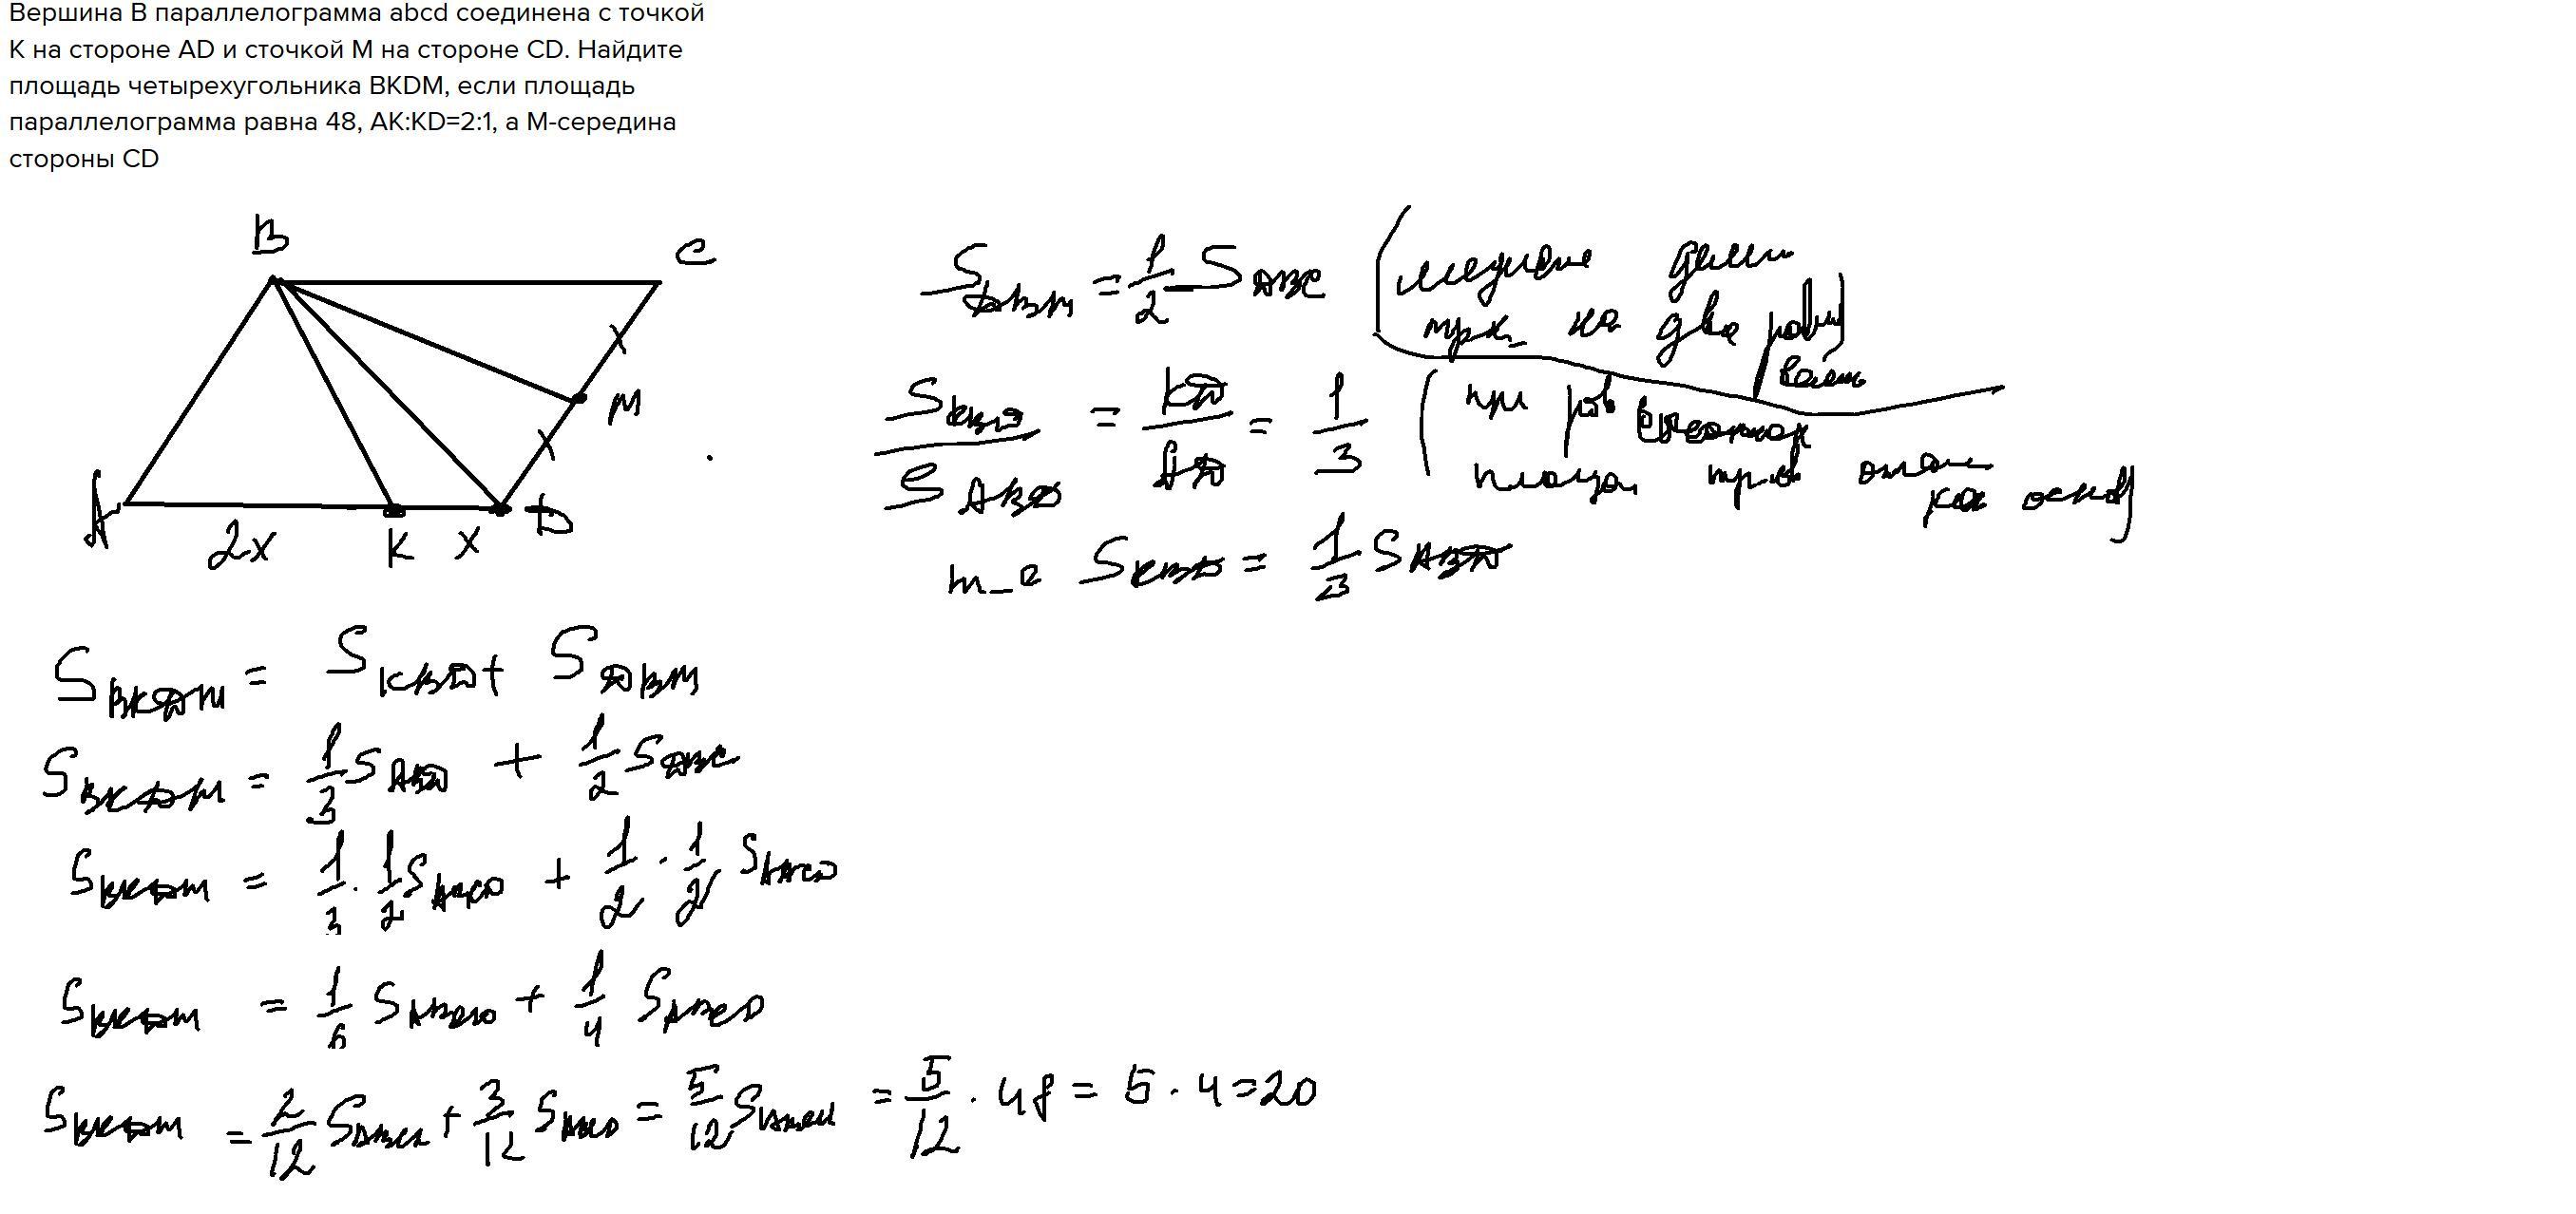 Вершина В параллелограмма abcd соединена с точкой
К на стороне AD и сточкой М на стороне CD. Найдите
площадь четырехугольника BKDM, если площадь
параллелограмма равна 48, AK:KD=2:1, а М-середина
стороны CD
B
C
M
A
2x K x D
S DBM = 1/2 S DBC (медиана делит
тр-к на два равн
велик)
S KBD / S ABD = KD / AD = 1/3 (при рав высотах
площади тр-ов относ
как основ)
т-е S KBD = 1/3 S ABD
S BKDM = S KBD + S DBM
S BKDM = 1/3 S ABD + 1/2 S DBC
S BKDM = 1/3 · 1/2 S ABCD + 1/2 · 1/2 S ABCD
S BKDM = 1/6 S ABCD + 1/4 S ABCD
S BKDM = 2/12 S ABCD + 3/12 S ABCD = 5/12 S ABCD = 5/12 · 48 = 5 · 4 = 20